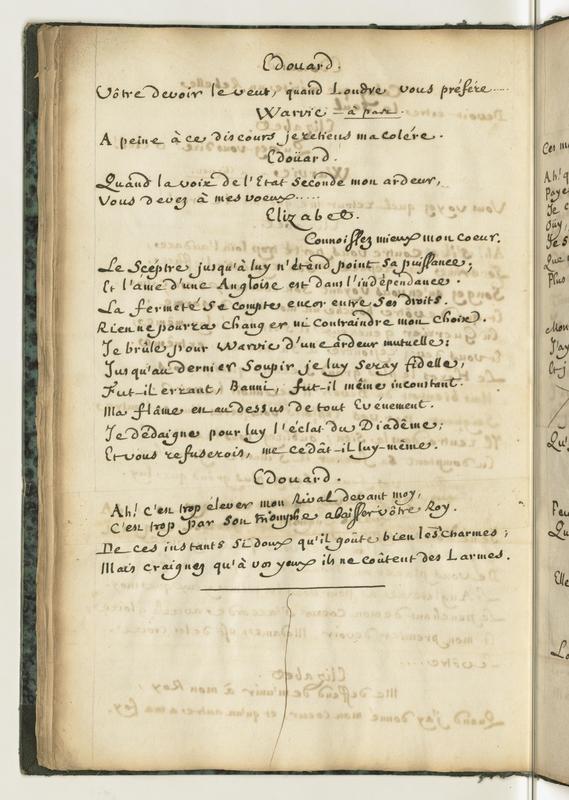 Edouard.
Vôtre devoir le veut, quand Londre vous préfére.....
Warvic - à part.
A peine à ce discours je retiens ma colére.
Edoüard.
Quand la voix de l'Etat seconde mon ardeur,
Vous devez à mes voeux.....
Elizabet.
Connoissez mieux mon coeur.
Le Scéptre jusqu'à luy n'étend point sa puissance;
Et l'ame d'une Angloise est dans l'indépendance.
La fermeté se compte encor entre ses droits.
Rien ne pourra changer ni contraindre mon choix.
Je brûle pour Warvic d'une ardeur mutuelle;
Jusqu'au dernier Soupir je luy seray fidelle;
Fut-il errant, Banni, fut-il même inconstant.
Ma flâme en au dessus de tout Evénement.
Je dédaigne pour luy l'éclat du Diadême;
Et vous refuserois, me cedât-il luy-même.
Edouard.
Ah! c'en trop élever mon Rival devant moy,
C'en trop par son triomphe abaisser vôtre Roy.
De ces instants si doux qu'il goûte bien les charmes;
Mais craignez qu'à vos yeux ils ne coûtent des Larmes.